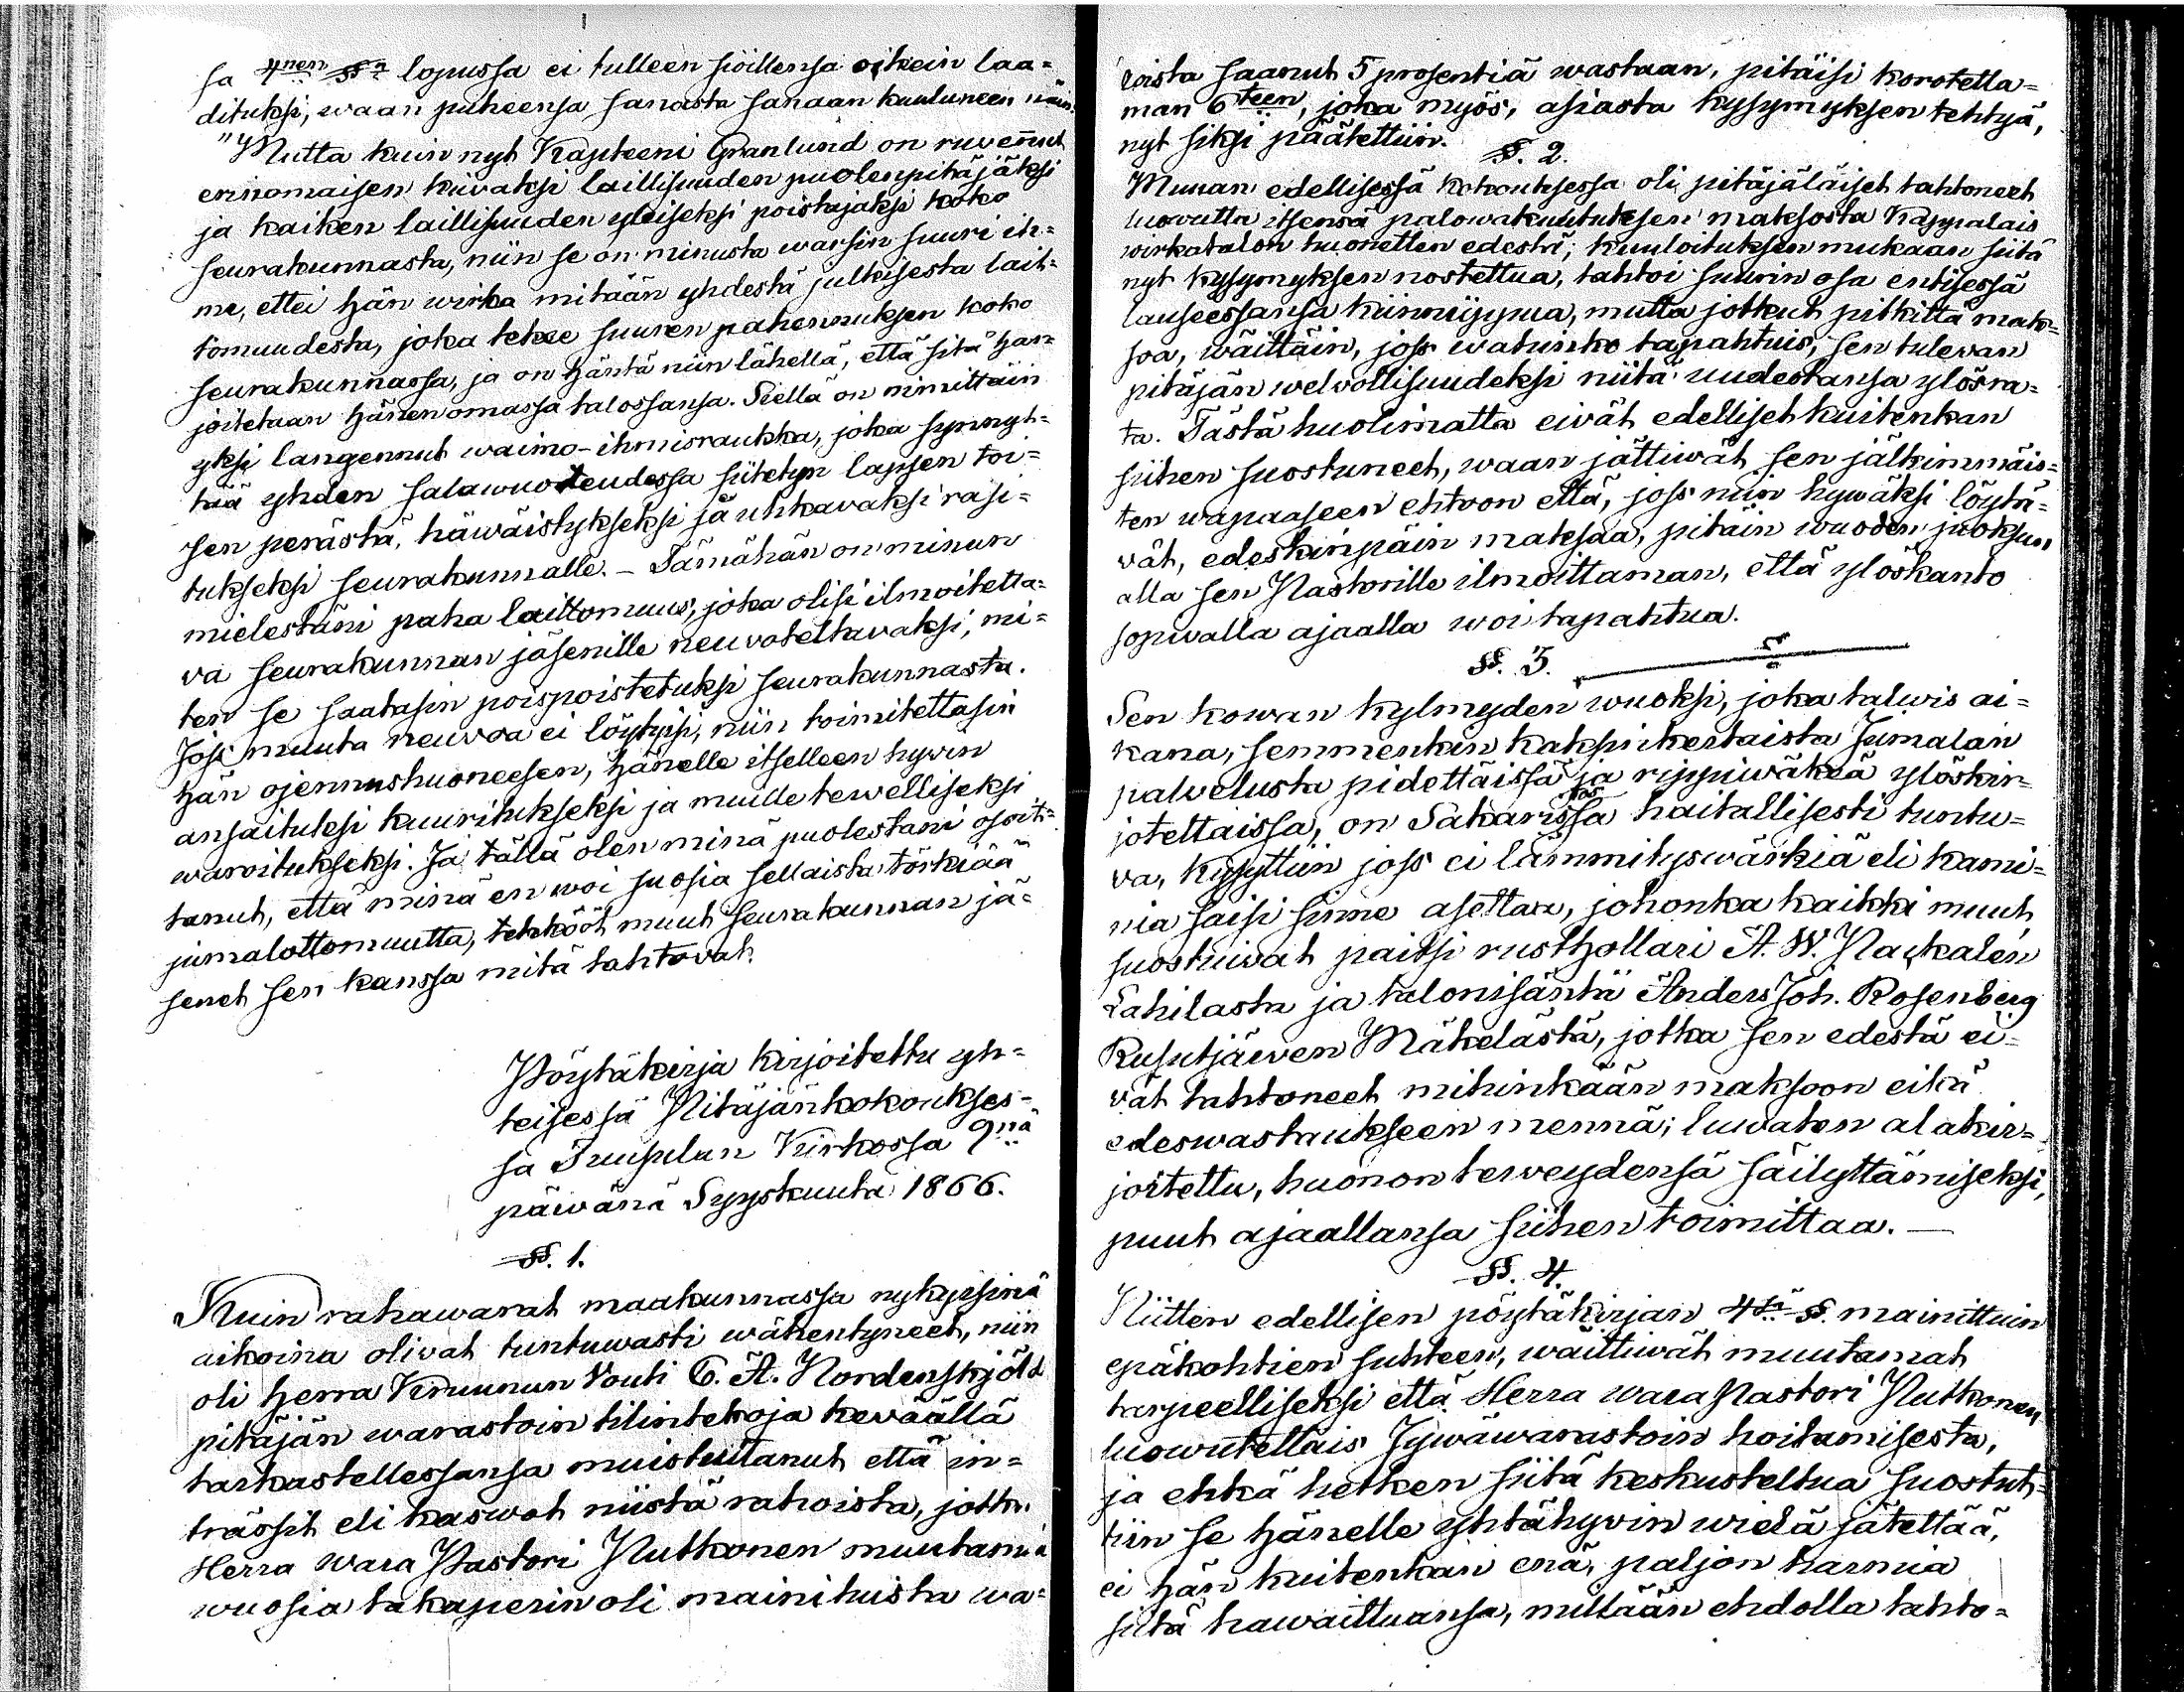 sa 4nen §§n lopussa ei tulleen siöillensä oikein laa=
dituksi, waan puheensa sanasta sanaan kuuluneen näin:
"Mutta kuin nyt Kapteeni Granlund on ruvennut
erinomaisen kiivaksi laillisuuden puolenpitäjäksi
ja kaiken laillisuuden yleiseksi poistajaksi koko
seurakunnasta, niin se on minusta warsin suuri ih=
me, ettei hän wirka mitään yhdestä julkisesta lait=
tomuudesta, joka tekee suuren pahennuksen koko
seurakunnassa, ja on häntä niin lähellä, että sitä har=
joitetaan hänen omassa talossansa. Siellä on nimittäin
yksi langennut waimo-ihmisraukka, joka synnyt=
tää yhden salawuoteudessa siitetyn lapsen toi=
sen perästä, häwäistykseksi ja uhkavaksi rasi=
tukseksi seurakunnalle. - Tämähän on minun
mielestäni paha laittomuus, joka olisi ilmoitetta=
va seurakunnan jäsenille neuvoteltavaksi, mi=
ten se saatasin poispoistetuksi seurakunnasta.
Josi muuta neuvoa ei löytyisi, niin toimitettasin
hän ojennushuoneesen, hänelle itselleen hywin
ansaituksi kuuritukseksi ja muille terwelliseksi
waroitukseksi. Ja tällä olen minä puolestani osoit=
tanut, että minä en woi suosia sellaista törkiää
jumalattomuutta, tehkööt muut seurakunnan jä=
senet sen kanssa mitä tahtovat.
Pöytäkirja kirjoitettu yh=
teisessä Pitäjänkokoukses=
sa Tuusulan Kirkossa 9nä
päiwänä Syyskuuta 1866.
§§. 1.
Kuin rahawarat maakunnassa nykyisinä
aikoina olivat tuntuwasti wähentyneet, niin
oli herra Kruunun Vouti C. A. Nordenskjöld
pitäjän warastoin tilintekoja keväällä
tarkastellessansa muistuttanut että in=
trässit eli kaswot niistä rahoista, jotka
Herra wara Pastori Nutkonen muutamia
wuosia takaperin oli mainituista wa=
roista saanut 5 prosentiä wastaan, pitäisi korotetta=
man 6teen, joka myös, asiasta kysymyksen tehtyä,
nyt siksi päätettiin.
§. 2.
Munan edellisessä kokouksessa oli pitäjäläiset tahtoneet
luowutta itsensä palowakuutuksen maksosta Kappalais
wirkatalon huonetten edestä; kuuloituksen mukaan siitä
nyt kysymyksen nostettua, tahtoi suurin osa entisessä
lauseessansa kiinniypyä, mutta jotkut pitkittä mak=
soa, wäittäin, joss watinko tapahtuis, sen tulewan
pitäjän welvollisuudeksi niitä uudestansa ylösra=
ta. Tästä huolimatta eivät edelliset kuitenkan
siihen suostuneet, waan jättiwät sen jälkimmäis=
ten wapaaseen ehtoon että, joss niin hywäksi löytä=
vät, edeskinpäin maksaa, pitäin wuoden juoksun
alla sen Pastorille ilmoittaman, että ylöskanto
sopiwalla ajaalla woi tapahtua.
§§. 3.
Sen kowan kylmyden wuoksi, joka talwis ai=
kana, semmenkin kaksinkertaista Jumalan
palvelusta pidettäissä ja rippiwäkeä ylöskir=
joteltaissa, on Sakaristossa haitallisesti tuntu=
va, kysyttiin joss ei lämmityswärkiä eli kami=
nia saisi sinne asettaa, johonka kaikki muut
suostuivat paitsi rusthollari A. W. Nackalén
Lahilasta ja talonisäntä Anders Joh. Rosenberg
Rusutjärwen Mäkelästä, jotka sen edestä ei=
vät tahtoneet mihinkään maksoon eikä
edeswastaukseen mennä; luwaten alakir=
joitettu, huonon terweydensä säilyttämiseksi,
puut ajaallansa siihen toimittaa. —
§§. 4.
Niitten edellisen pöytäkirjan 4tä §. mainittuin
epäkohtien suhteen, wäittiwät muutamat
tarpeelliseksi että Herra wara Pastori Nutkonen
luowutettais Jywäwarastoin hoitamisesta,
ja ehkä hetken siitä keskusteltua suostut=
tiin se hänelle yhtähywin wielä jätettää,
ei hän kuitenkan enä, paljon harmia
siitä hawaittuansa, millään ehdolla tahto=